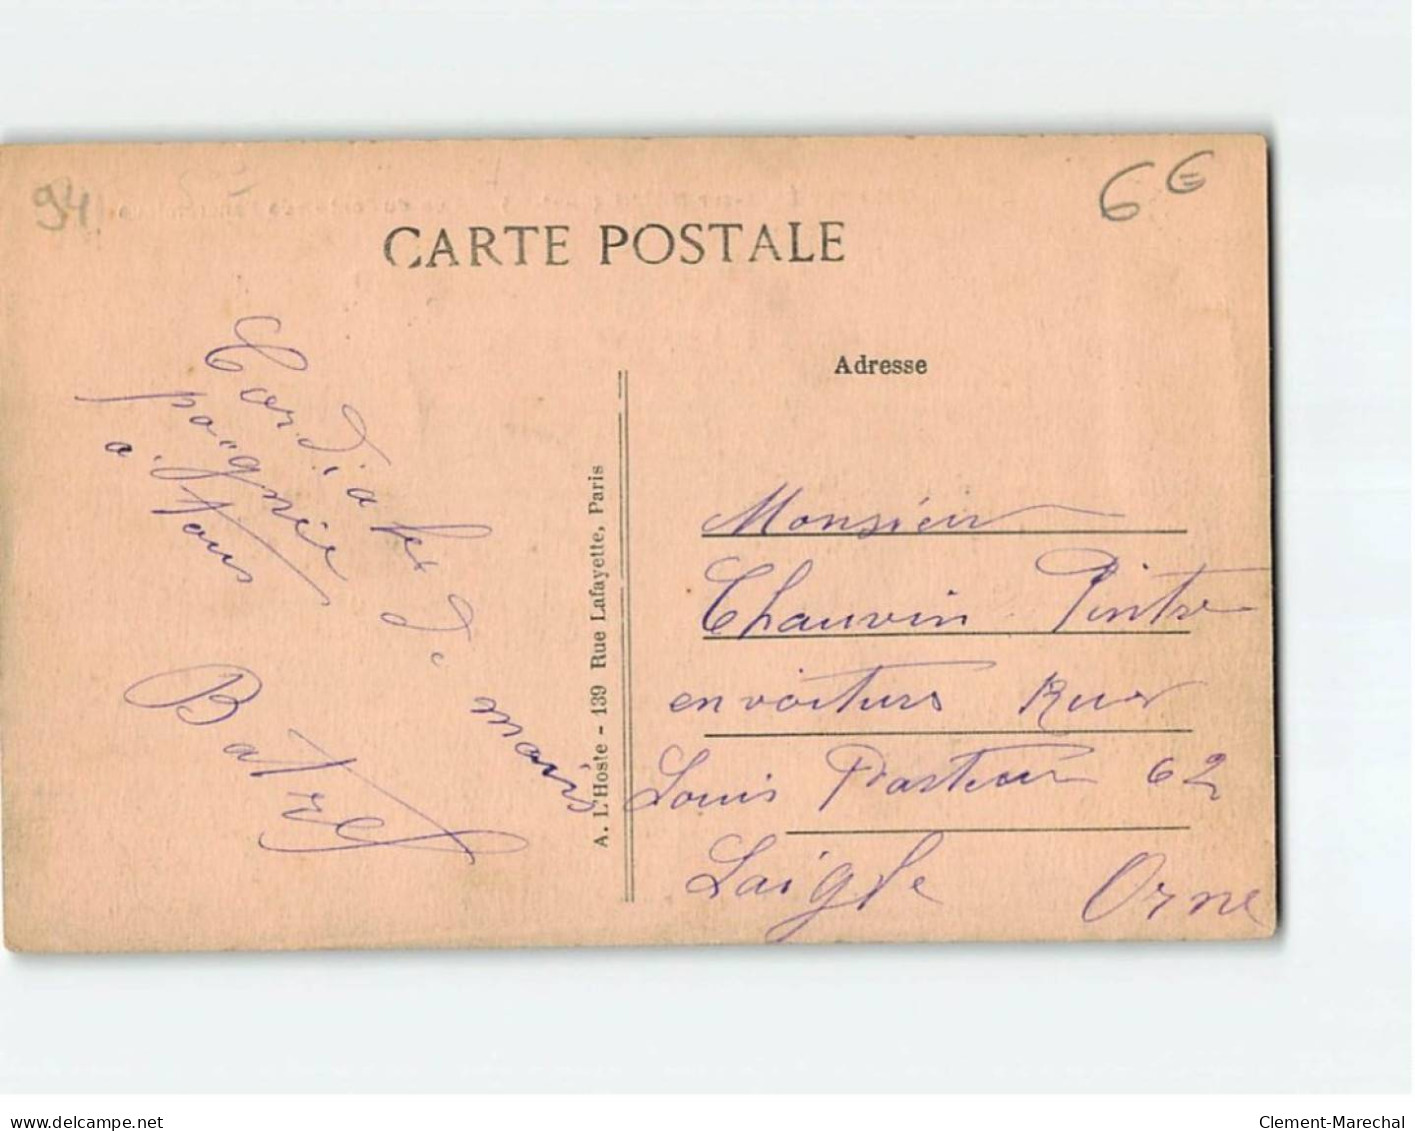 94
6€
CARTE POSTALE
Adresse
Cordiales
poignée De mains
a. tous
Batrel
A. L'Hoste - 139 Rue Lafayette, Paris
Monsieur
Chauvin Pintre
en voitures Rue
Louis Pasteur 62
Laigle Orne
www.delcampe.net
Clement-Marechal